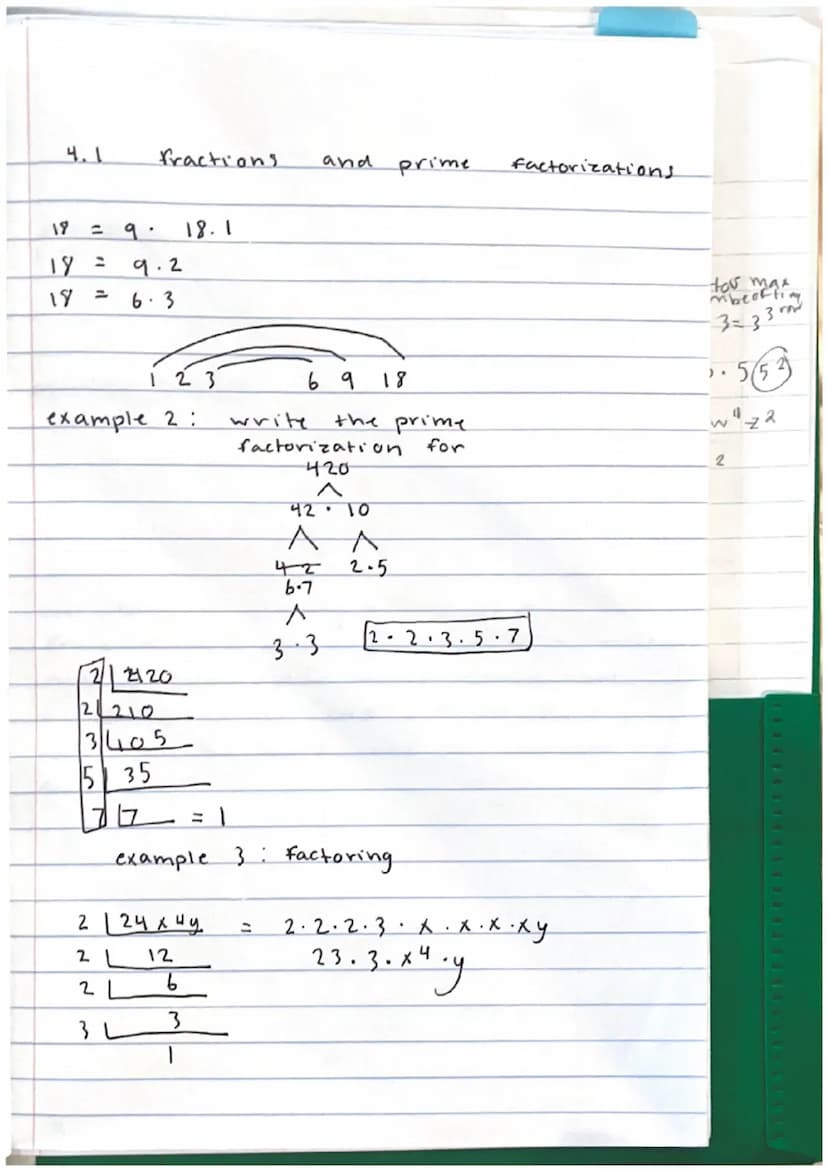 4.1 fractions and prime factorizations
18 = 9 · 18.1
18 = 9.2
18 = 6.3
1 2 3 6 9 18
example 2: write the prime
factorization for
420
42 · 10
4 2 2.5
6.7
3.3
2 · 2 · 3 · 5 · 7
2 420
2 210
3 105
5 35
7 7 = 1
example 3: factoring
2 24 x 4y = 2.2.2.3 · x . x . x . xy
2 12 23 . 3 . x4 . y
2 6
3 3
1
max
3 = 3 3
. 5 5 2
w 4 z 2
2